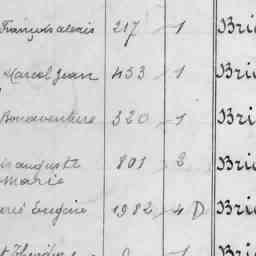 François alexis 217 1 Bri
Marcel Jean 453 1 Bri
Bonaventure 320 1 Bri
auguste 801 2 Bri
Marie
Eugène 1982 4 D Bri
1 Bri